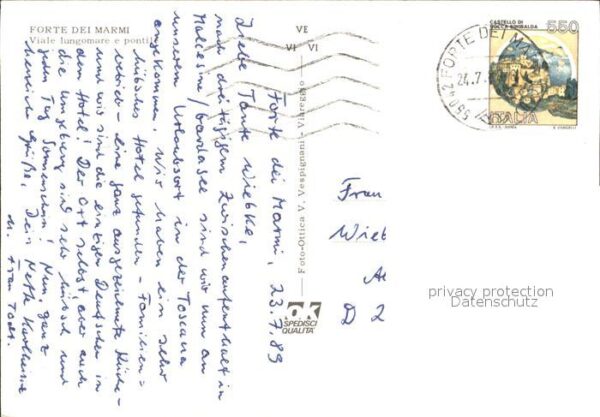 FORTE DEI MARMI
Viale lungomare e pontile
Forte dei Marmi, 23.7.89
Liebe Tante Wiebke,
nach dreitägigem Zwischenaufenthalt in
Malcesine/Gardasee sind wir nun an
unserem Urlaubsort in der Toscana
angekommen. Wir haben ein sehr
hübsches Hotel gefunden - Familien-
betrieb - eine ganz ausgezeichnete Küche -
und wir sind die einzigen Deutschen in
dem Hotel! Der Ort selbst, aber auch
die Umgebung sind sehr hübsch und
jeden Tag Sonnenschein! Nun ganz
herzliche Grüße, Dein Neffe Karlheinz
u. Frau
VE
VI VI
Foto-Ottica V. Vespignani - Viareggio
OK
SPEDISCI
QUALITÀ
55042 FORTE DEI M
24.7.
CASTELLO DI
ROCCA SINIBALDA
550
ITALIA
Frau
Wieb
D 2
privacy protection
Datenschutz